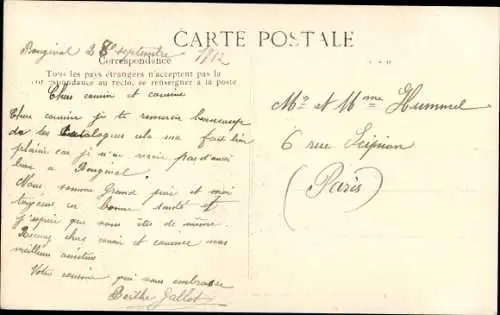 CARTE POSTALE
Bouginal 28 septembre 1912
Correspondance
Tous les pays étrangers n'acceptent pas la
correspondance au recto, se renseigner à la poste
Chers cousin et cousine
Chère cousine je te remercie beaucoup
de tes Catalogues cela me fait bien
plaisir car je n'en avais pas d'aussi
beau a Bouginal
Nous sommes Grand père et moi
toujours en bonne santé et
j'espère que vous êtes de même.
Recevez chers cousin et cousine nos
meilleurs amitiés
Votre cousine qui vous embrasse
Berthe Gallot
Mr et Mme Hummel
6 rue Scipion
(Paris)